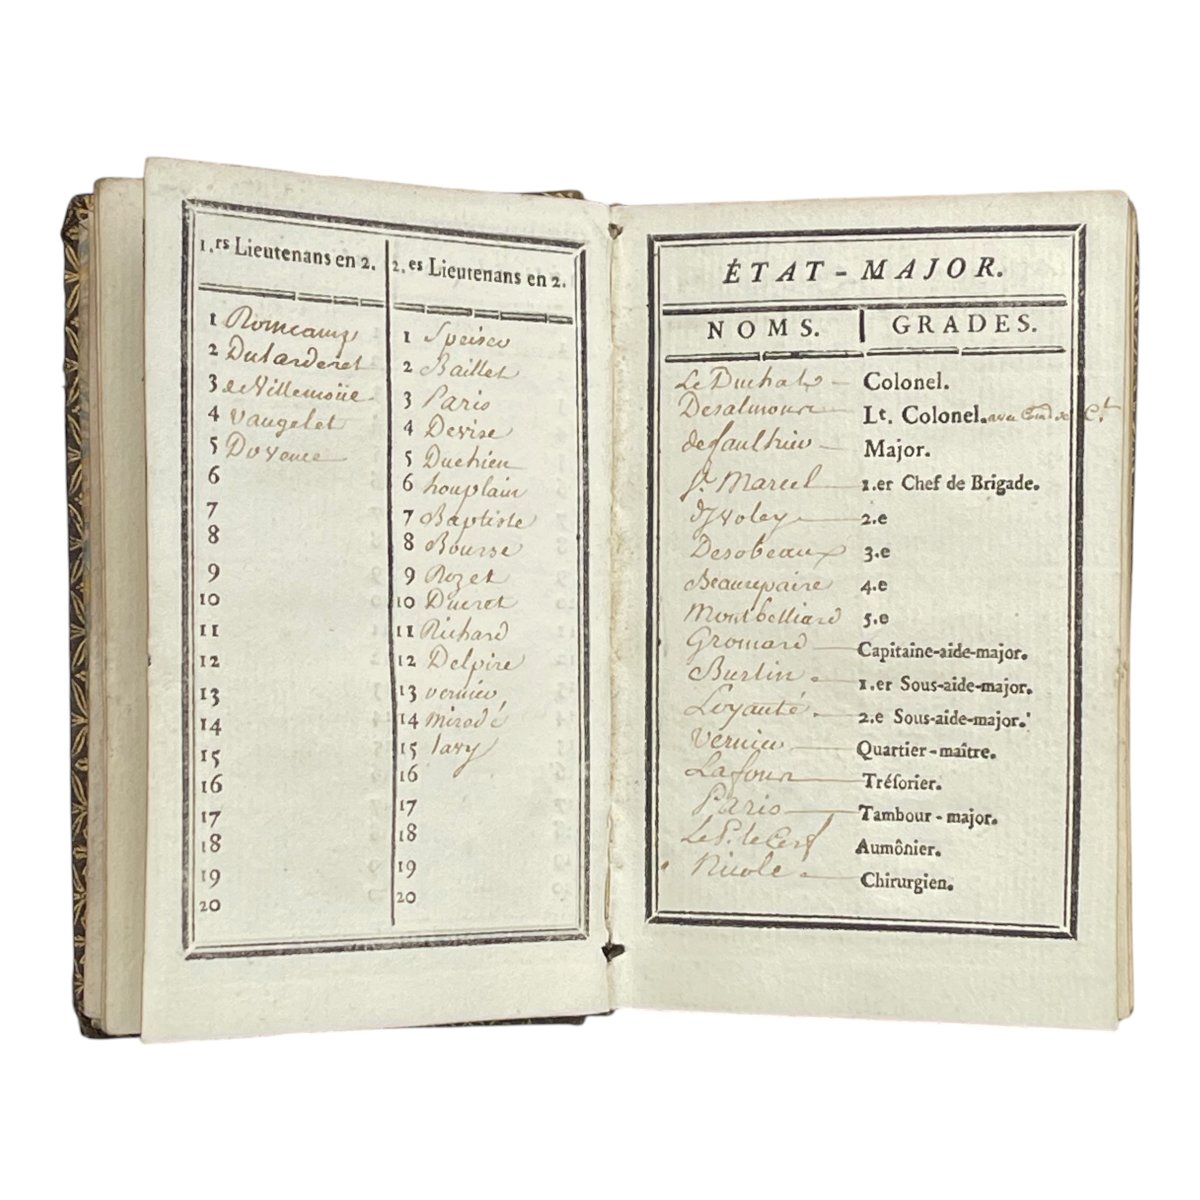 1.rs Lieutenans en 2.
1 Romcamp
2 Dularderet
3 de Villemoüe
4 Vaugelet
5 Dovence
6
7
8
9
10
11
12
13
14
15
16
17
18
19
20
2.es Lieutenans en 2.
1
2 Baillet
3 Paris
4 Devise
5 Duchien
6 houplain
7 Baptiste
8 Bourse
9 Rozet
10 Ducret
11 Richard
12 Delpire
13 vernier
14 Miredé
15 Lavy
16
17
18
19
20
ÉTAT-MAJOR.
NOMS. GRADES.
Le Duchat - Colonel.
Desalmour - Lt. Colonel. avec de C.t
de faulthier - Major.
St. Marcel - 1.er Chef de Brigade.
d'Ivoley - 2.e
Desobeaux 3.e
Beaurepaire 4.e
Montbelliard 5.e
Gromard - Capitaine-aide-major.
Burtin - 1.er Sous-aide-major.
Loyauté. - 2.e Sous-aide-major.
Vernier - Quartier-maître.
Lafour - Tréforier.
Paris - Tambour-major.
Le P. le Cerf Aumônier.
Nicole. - Chirurgien.